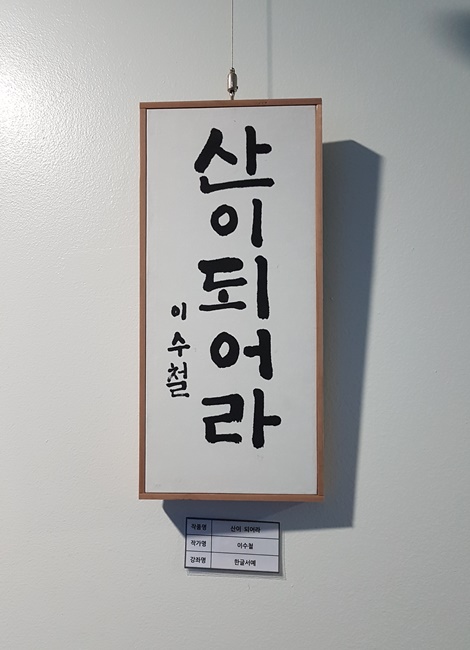 산이되어라
이수철
작품명 산이 되어라
작가명 이수철
강좌명 한글서예